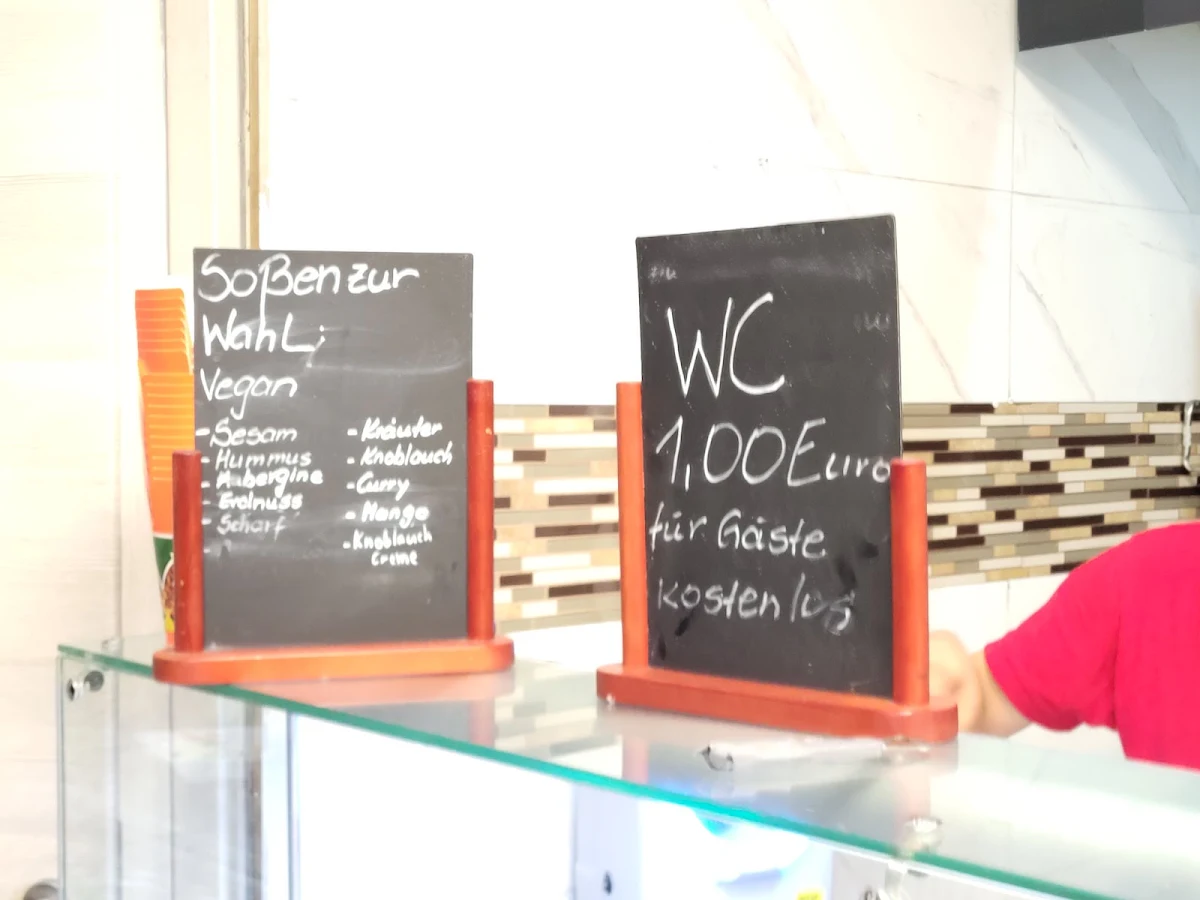 Soßen zur
Wahl;
Vegan
- Sesam
- Hummus
- Aubergine
- Erdnuss
- Scharf
- Kräuter
- Knoblauch
- Curry
- Mango
- Knoblauch
Creme
WC
1,00 Euro
für Gäste
kostenlos